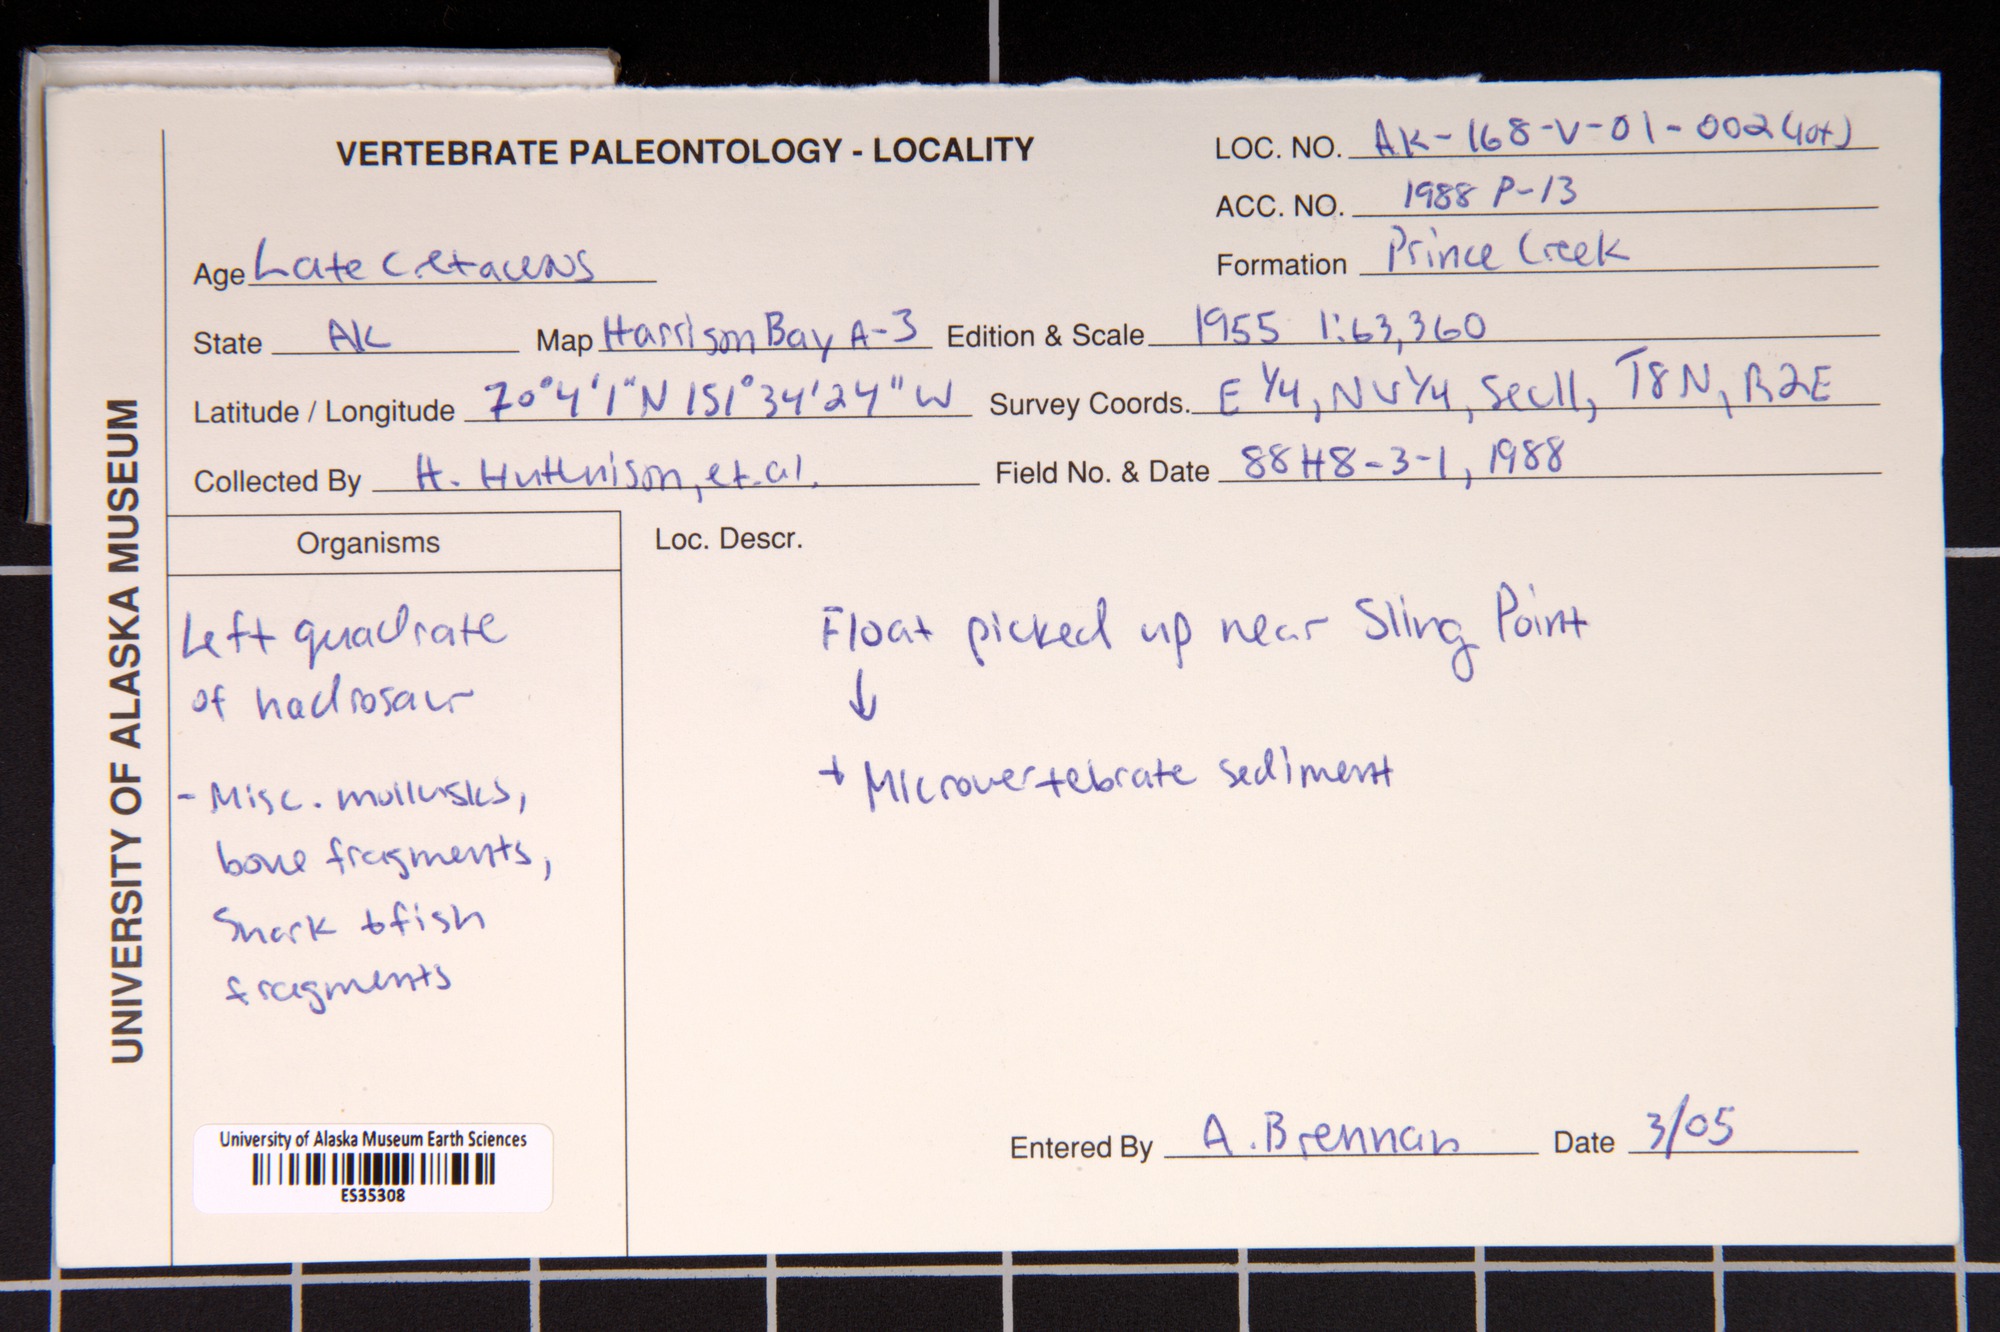 UNIVERSITY OF ALASKA MUSEUM
VERTEBRATE PALEONTOLOGY - LOCALITY
LOC. NO. AK-168-V-01-002 (lot)
ACC. NO. 1988 P-13
Age Late Cretaceous
Formation Prince Creek
State AK Map Harrison Bay A-3 Edition & Scale 1955 1:63,360
Latitude / Longitude 70°4'1"N 151°34'24"W Survey Coords. E 1/4, NW 1/4, Sec 11, T8N, R2E
Collected By H. Hutchison, et. al. Field No. & Date 88HB-3-1, 1988
Organisms
Left quadrate
of hadrosaur
- Misc. mollusks,
bone fragments,
Shark & fish
fragments
Loc. Descr.
Float picked up near Sling Point
↓
+ Microvertebrate sediment
Entered By A. Brennan Date 3/05
University of Alaska Museum Earth Sciences
ES35308